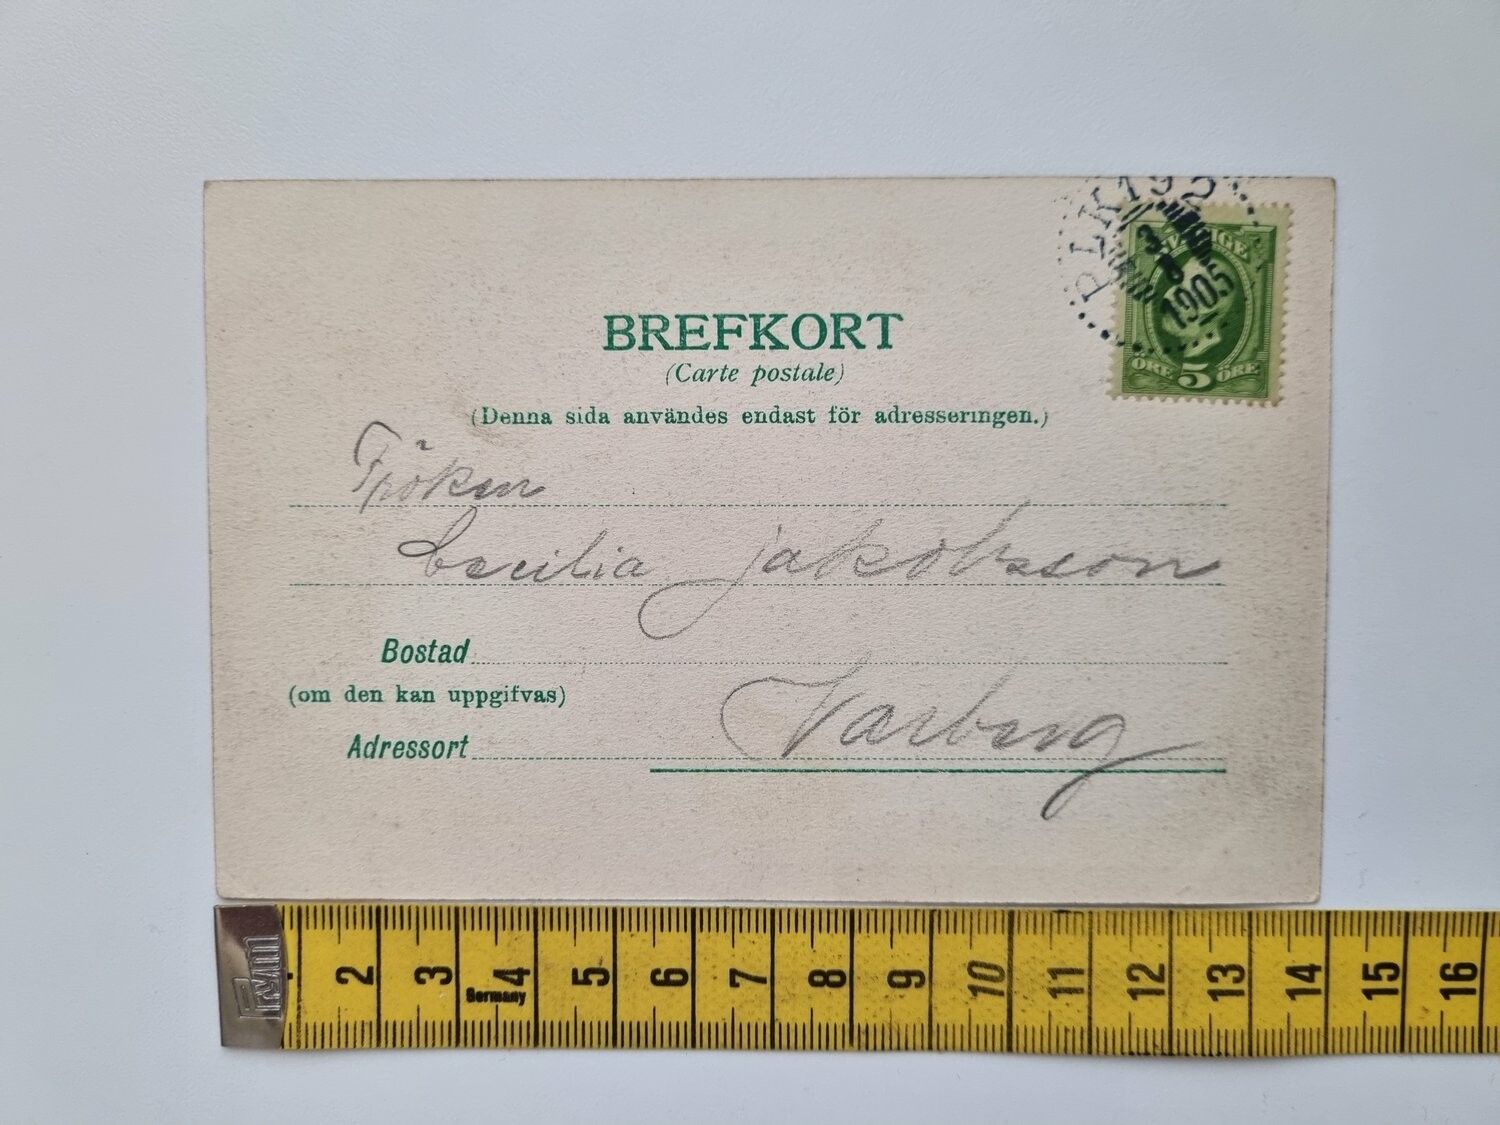 PLK 192
3 8
1905
SVERIGE
ÖRE 5 ÖRE
BREFKORT
(Carte postale)
(Denna sida användes endast för adresseringen.)
Fröken
Cecilia Jakobsson
Bostad
(om den kan uppgifvas)
Varberg
Adressort
Prym
2 3 4 5 6 7 8 9 10 11 12 13 14 15 16
Germany